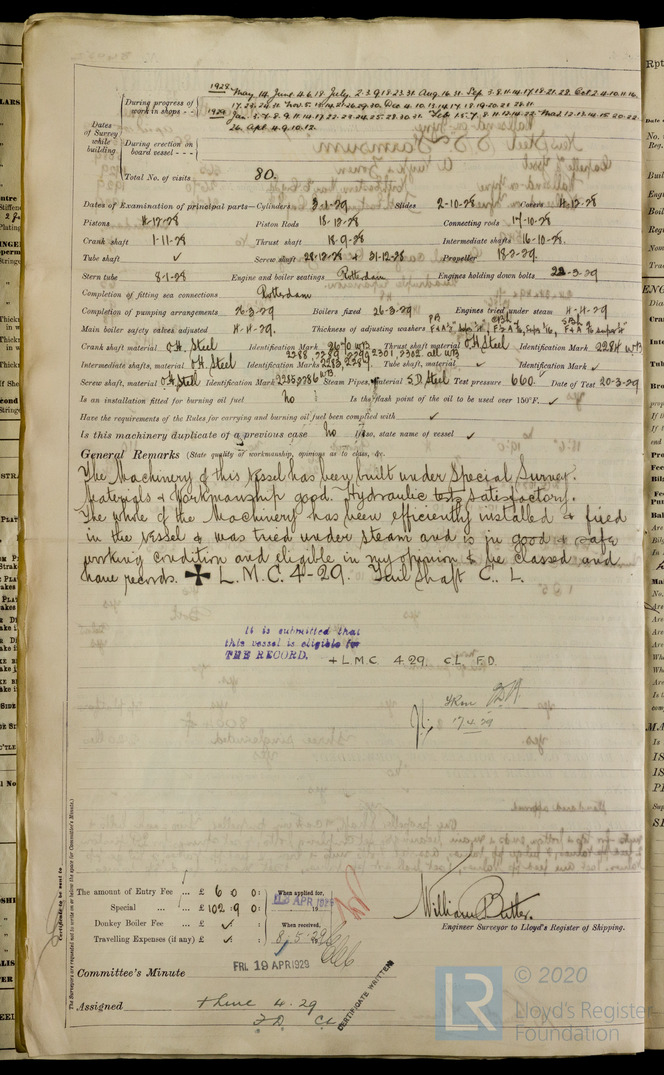 1928 May 14. June 4.6.18 July. 2.3.9.18.23.31. Aug. 16.31. Sep. 3.8.11.14.17.18.21.28. Oct. 2.4.10.11.16.
During progress of work in shops - -
Dates of Survey while building
During erection on board vessel - - -
Total No. of visits 80.
Dates of Examination of principal parts—Cylinders 3-1-29 Slides 2-10-28 Covers 4-12-28
Pistons 4-12-28 Piston Rods 18-12-28 Connecting rods 17-10-28
Crank shaft 1-11-28 Thrust shaft 18-9-28 Intermediate shafts 16-10-28.
Tube shaft ✓ Screw shaft 28-12-28 & 31-12-28 Propeller 18-2-29.
Stern tube 8-1-28 Engine and boiler seatings Rotterdam Engines holding down bolts 22-3-29
Completion of fitting sea connections Rotterdam
Completion of pumping arrangements 26-3-29 Boilers fixed 26-3-29 Engines tried under steam 4-4-29
Main boiler safety valves adjusted 4-4-29. Thickness of adjusting washers
Crank shaft material O.H. Steel Identification Mark 2670 WB Thrust shaft material O.H Steel Identification Mark 2284 WB
2288, 2289, 2299, 2301, 2302 all WB
Intermediate shafts, material O.H. Steel Identification Marks Tube shaft, material ✓ Identification Mark ✓
Screw shaft, material O.H. Steel Identification Mark 2285,2786 WB Steam Pipes, material S.D. Steel Test pressure 660. Date of Test 20-3-29
Is an installation fitted for burning oil fuel no Is the flash point of the oil to be used over 150°F. ✓
Have the requirements of the Rules for carrying and burning oil fuel been complied with ✓
Is this machinery duplicate of a previous case No If so, state name of vessel ✓
General Remarks (State quality of workmanship, opinions as to class, &c.
The Machinery of this Vessel has been built under Special Survey.
Materials & Workmanship good. Hydraulic tests satisfactory.
The whole of the Machinery has been efficiently installed & fixed
in the vessel & was tried under steam and is in good & safe
working condition and eligible in my opinion to be classed and
have records. ✠ L.M.C. 4-29. Tail Shaft C. L.
It is submitted that
this vessel is eligible for
THE RECORD. + L.M.C 4.29. C.L. F.D.
17.4.29
The amount of Entry Fee ... £ 6 : 0 : 0 : When applied for,
Special ... £ 102 : 9 : 0 : 12 APR 1929
Donkey Boiler Fee ... £ ✓ : When received,
Travelling Expenses (if any) £ ✓ : 8.5.29
William Butler.
Engineer Surveyor to Lloyd's Register of Shipping.
Committee's Minute FRI. 19 APR 1929
Assigned + Lmc 4.29
F.D. CL
CERTIFICATE WRITTEN
Certificate to be sent to
The Surveyors are requested not to write on or below the space for Committee's Minute.
LR © 2020
Lloyd's Register
Foundation